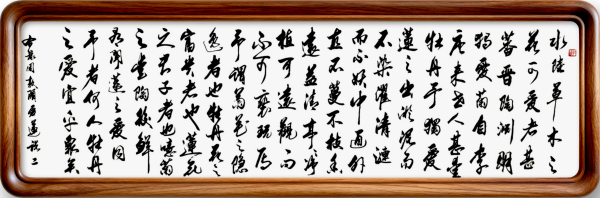 水陸草木之
花可愛者甚
蕃晉陶淵明
獨愛菊自李
唐來世人甚愛
牡丹予獨愛
蓮之出淤泥而
不染濯清漣
而不妖中通外
直不蔓不枝香
遠益清亭亭淨
植可遠觀而
不可褻玩焉
予謂菊花之隱
逸者也牡丹花之
富貴者也蓮花
之君子者也噫菊
之愛陶後鮮
有聞蓮之愛同
予者何人牡丹
之愛宜乎眾矣
右錄周敦頤愛蓮說